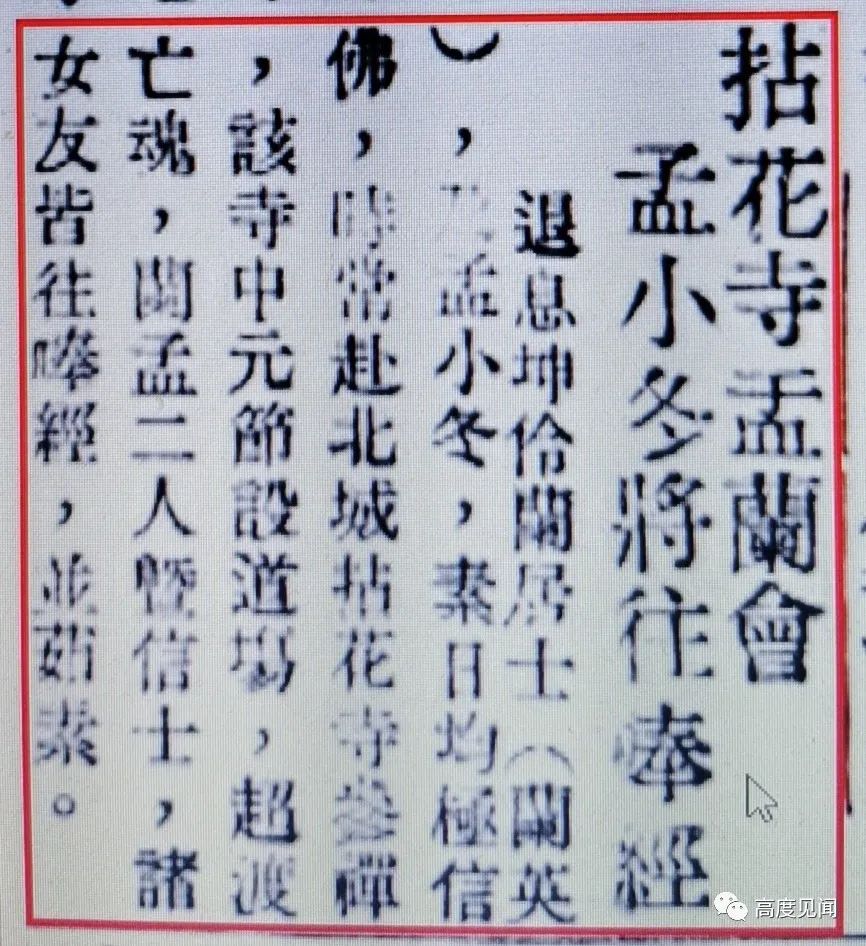 拈花寺盂蘭會
孟小冬將往唪經
退息坤伶蘭居士（蘭英
），孟小冬，素日均極信
佛，時常赴北城拈花寺參禪
，該寺中元節設道場，超渡
亡魂，聞孟二人暨信士，諸
女友皆往唪經，並茹素。
高度见闻